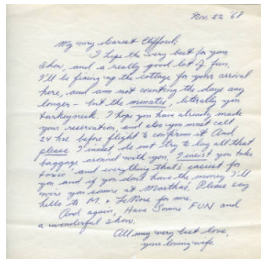 Nov. 22 '68
My very dearest Clifford,
I hope the very best for your
show, and a really good lot of fun.
I'll be fixing up the cottage for your arrival
here, and am not counting the days any
longer - but the minutes, literally you
I hope you have already made
your reservation, and also you must call
24 hrs. before flight to confirm it. And
please I insist do not try to lug all that
baggage around with you, I insist you take
taxis and everything that's easiest for
you and if you don't have the money I'll
Please say
hello to M. + for me.
And again, Have Some FUN and
a wonderful show.
All my very best love,
your loving wife